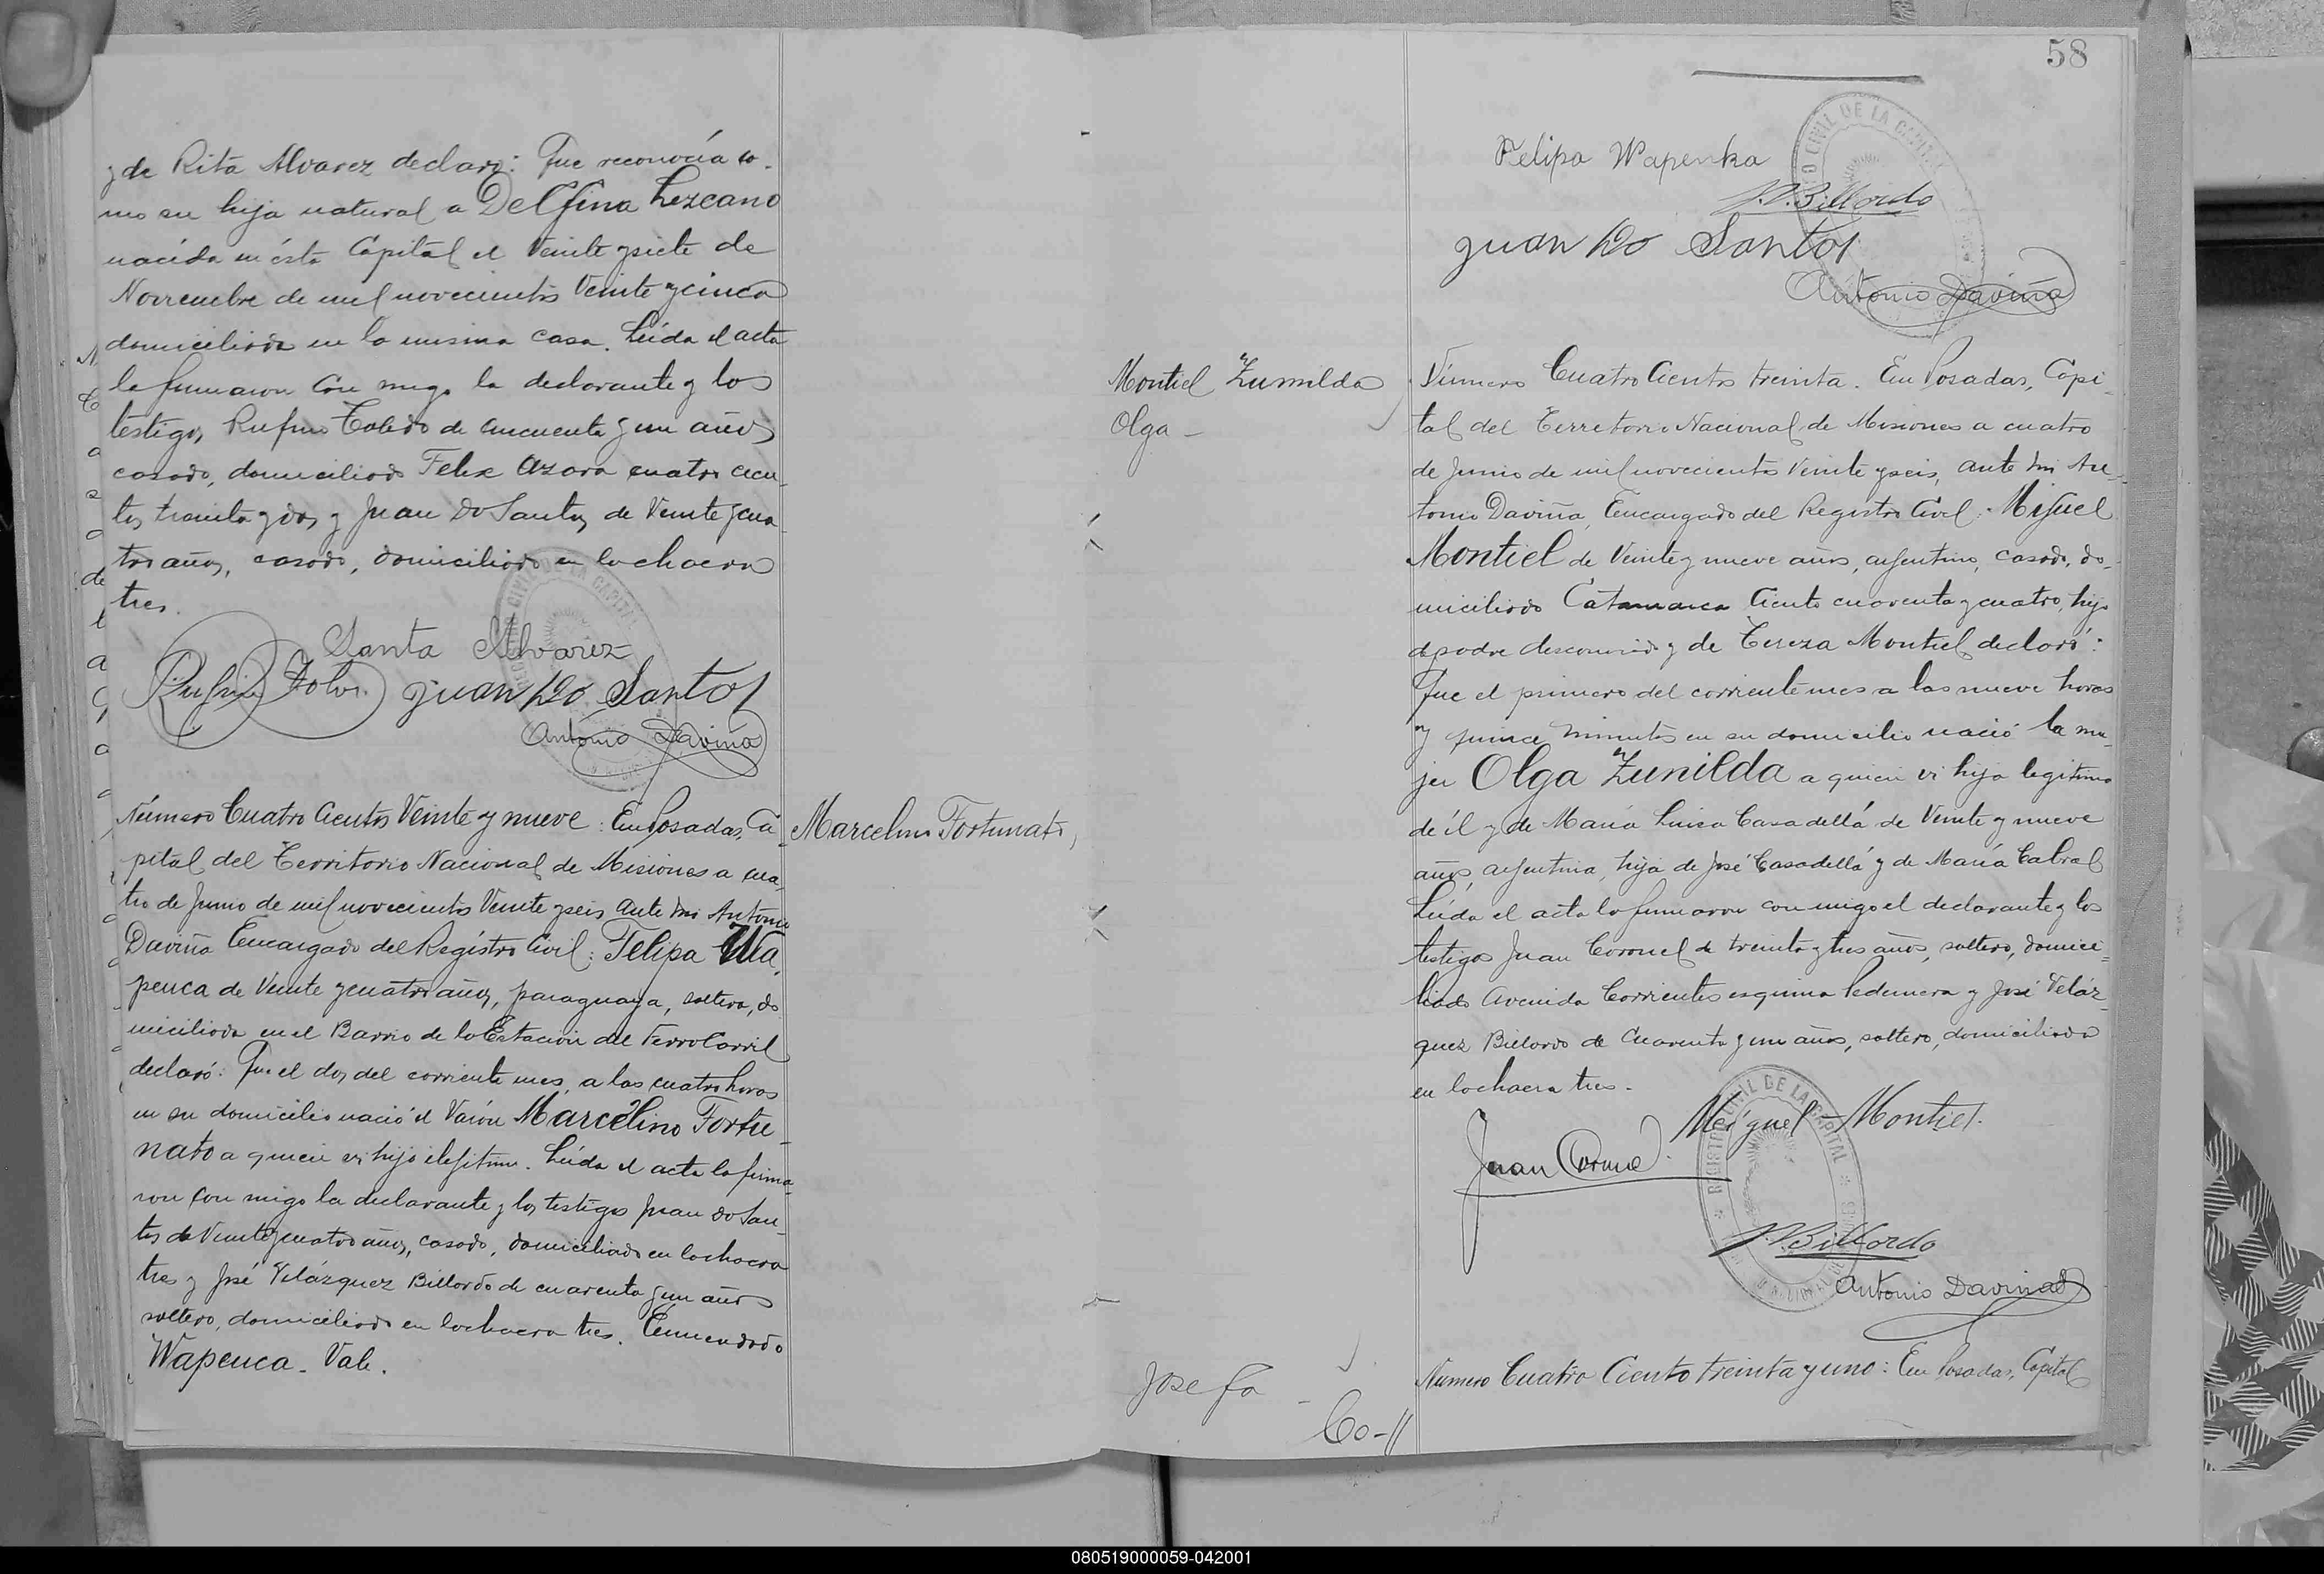 y de Rita Alvarez declaro: Que reconocía co-
mo su hija natural a Delfina Lezcano
nacida en ésta Capital el Veinte y siete de
Noviembre de mil novecientos Veinte y cinco
domiciliada en la misma casa. Leida el acta
la firmaron con migo la declarante y los
testigos Rufino Toledo de cincuenta y un años
casado, domiciliado Felix Azara cuatro cien-
tos treinta y dos y Juan Do Santos de Veinte y cua-
tro años, casado, domiciliado en la chacra
tres.
Santa Alvarez
Juan Do Santos
Antonio Daviña
Número Cuatro Cientos Veinte y nueve: En Posadas, Ca-
pital del Territorio Nacional de Misiones a cua-
tro de Junio de mil novecientos Veinte y seis, ante mi Antonio
Daviña Encargado del Registro Civil: Felipa Wa-
penca de Veinte y cuatro años, paraguaya, soltera, do
miciliada en el Barrio de la Estación del Ferro Carril
declaró: Que el dos del corriente mes, a las cuatro horas
en su domicilio nació el Varón Marcelino Fortu-
nato a quien vi hijo ilegitimo. Leida el acta la firma-
ron con migo la declarante y los testigos Juan Do San-
tos de Veinte y cuatro años, casado, domiciliado en la chacra
tres y José Velázquez Billordo de cuarenta y un años
soltero, domiciliado en la chacra tres. Enmendado
Wapenca. Vale.
Marcelino Fortunato,
58
Felipa Wapenka
J.V. Billordo
Juan Do Santos
Antonio Daviña
Montiel Zunilda
Olga -
Número Cuatro Cientos treinta. En Posadas, Capi-
tal del Territorio Nacional de Misiones a cuatro
de Junio de mil novecientos Veinte y seis, ante mi An-
tonio Daviña, Encargado del Registro Civil: Miguel
Montiel de Veinte y nueve años, argentino, casado, do-
miciliado Catamarca Ciento cuarenta y cuatro, hijo
de padre desconocido y de Tereza Montiel declaró:
Que el primero del corriente mes a las nueve horas
y quince minutos en su domicilio nació la mu-
jer Olga Zunilda a quien vi hija legitima
de él y de María Luisa Casadellá de Veinte y nueve
años, argentina, hija de José Casadellá y de María Cabral
Leida el acta la firmaron con migo el declarante y los
testigos Juan Coronel de treinta y tres años, soltero, domici-
liado Avenida Corrientes esquina Pedernera y José Veláz-
quez Billordo de Cuarenta y un años, soltero, domiciliado
en la chacra tres.
Miguel Montiel.
Juan Coronel
J.V. Billordo
Antonio Daviña
Josefa
Co-//
Número Cuatro Ciento treinta y uno: En Posadas, Capital
REGISTRO CIVIL DE LA CAPITAL
080519000059-042001